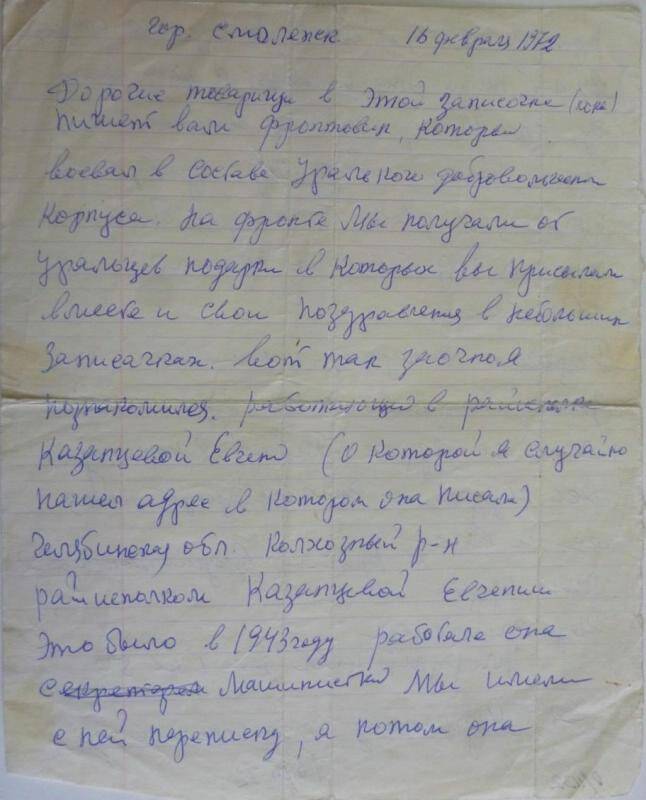 гор. Смоленск 16 февраля 1972.
Дорогие товарищи в этой записочке
пишет вам фронтовик, которы
воевал в составе Уральского добровольческ
Корпуса. На фронте мы получали от
Уральцев подарки в которых вы присылали
вместе и свои поздравления в небольших
Записачках. Вот так заочно я
познакомился. работающей в
Казанцевой Евгени (о которой я случайно
нашел адрес в котором она писала)
Челябинская обл. Колхозный р-н
райисполком Казанцевой Евгении
Это было в 1943 году работала она
секретарем Машинистко Мы имели
с ней переписку, а потом она